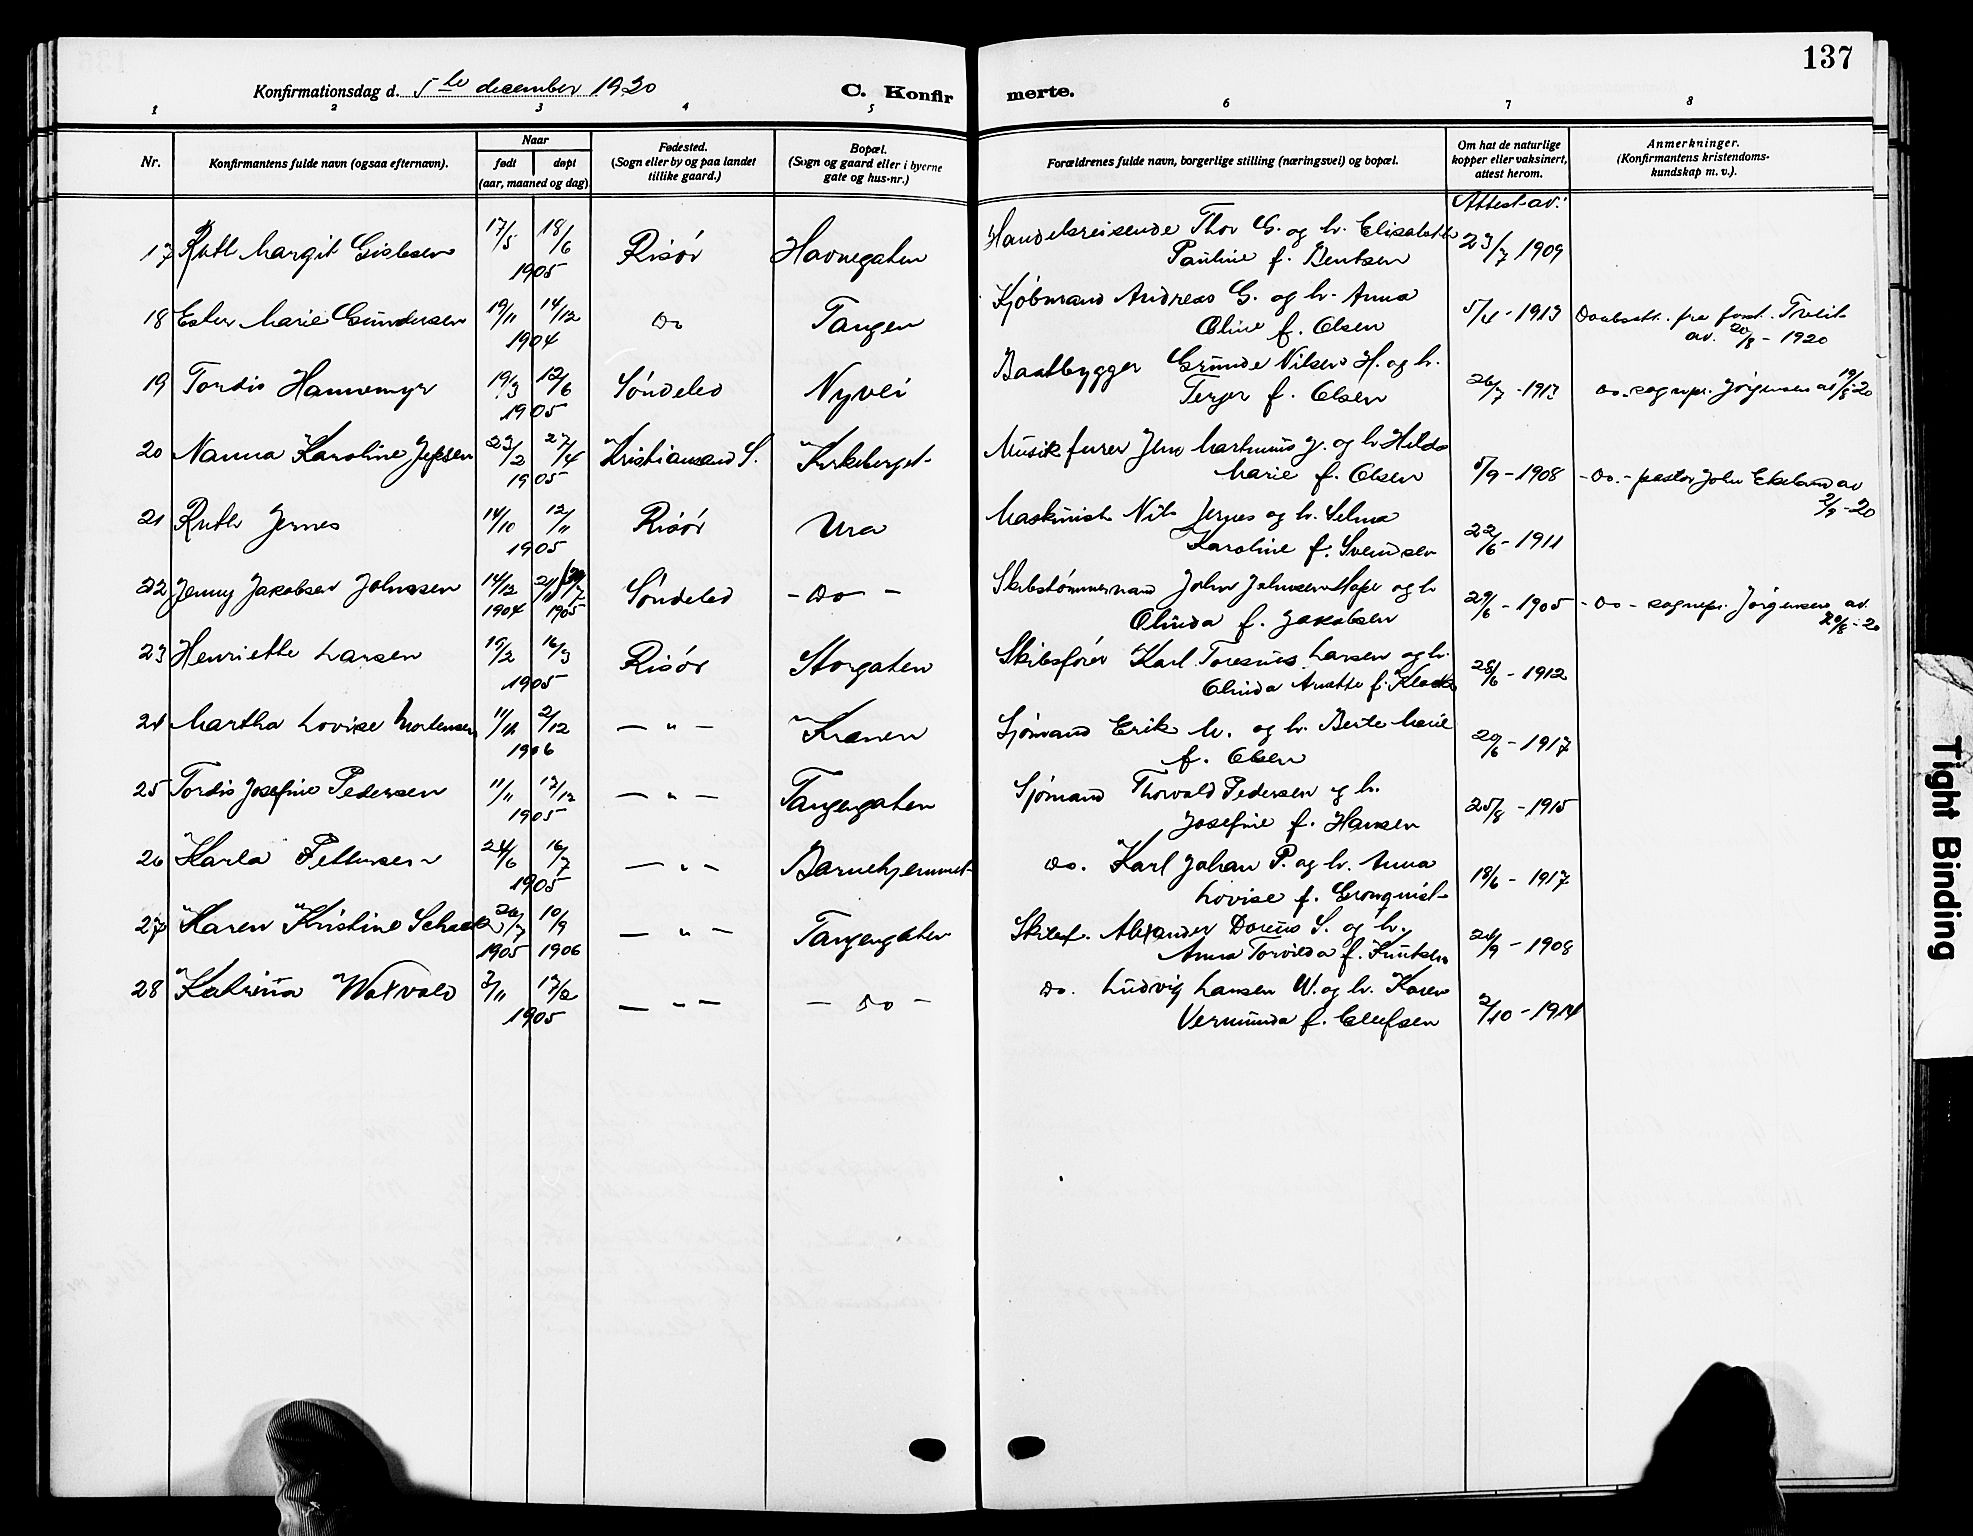 137
Konfirmationsdag d. 5te december 1920
C. Konfirmerte.
1 2 3 4 5 6 7 8
Nr.
Konfirmantens fulde navn (ogsaa efternavn).
Naar
født
døpt
(aar, maaned og dag)
Fødested.
(Sogn eller by og paa landet
tillike gaard.)
Bopæl.
(Sogn og gaard eller i byerne
gate og hus-nr.)
Forældrenes fulde navn, borgerlige stilling (næringsvei) og bopæl.
Om hat de naturlige
kopper eller vaksinert,
attest herom.
Anmerkninger.
(Konfirmantens kristendoms-
kundskap m. v.).
Attest av:
17 Ruth Margit Gislesen 17/5 18/6 Risør Havnegaten Handelsreisende Thor G. og h. Elisabeth 23/7 1909
1905 Pauline f. Bentsen
18 Ester Marie Gundersen 19/11 14/12 Do Tangen Kjøbmand Andreas G. og h. Anna 5/4 - 1913
1904 Oline f. Olsen av. 20/8 - 1920
19 Tordis Hannemyr 19/3 12/6 Søndeled Nyvei Baatbygger Gründe Nilsen H. og h. 26/7 - 1913 Do. sognepr. Jörgensen av 19/8-20
1905 f. Olsen
20 Nanna Karoline Jepsen 23/2 27/4 Kristiansand S. Kirkeberget Jens Martinius J. og h. Hilda 5/9 - 1908 - Do. - pastor John Ekeland av
1905 Marie f. Olsen 2/9 - 20
21 Ruth Jernes 14/10 12/11 Risør Ura Maskinist Nils Jernes og h. Selma 22/6 - 1911
1905 Karoline f. Svendsen
22 Jenny Jakobsen Johnsen 14/12 Søndeled - Do - Skibstømmermand John Johnsen Hope og h 29/6 - 1905 - Do - sognepr. Jörgensen av
1904 1905 Olinda f. Jakobsen 20/8 - 20
23 Henriette Larsen 15/2 16/3 Risør Storgaten Skibsfører Karl Toresius Larsen og h. 28/6 - 1912
1905 Olinda Anette f.
24 Martha Lovise Mortensen 11/11 2/12 — " — Kranen Sjømand Erik M. og h. Berte Marie 20/6 - 1917
1906 f. Olsen
25 Tordis Josefine Pedersen 11/11 17/12 — " — Tangengaten Sjømand Thorvald Pedersen og h. 25/8 - 1915
1905 Josefine f. Hansen
26 Karla Pettersen 24/6 16/7 — " — Barnehjemmet Do. Karl Johan P. og h. Anna 18/6 - 1917
1905 Lovise f. Gronquist
27 Karen Kristine Schack 26/7 10/9 — " — Tangengaten Skibsf. Alexander Dorenius S. og h. 24/9 - 1908
1905 1906 Anna Torvilda f. Knutsen
28 Katrina Waxvald 3/11 17/12 — " — - Do - Do. Ludvig Larsen W. og h. Karen 2/10 - 1914
1905 Vermunda f. Olufsen
Tight Binding